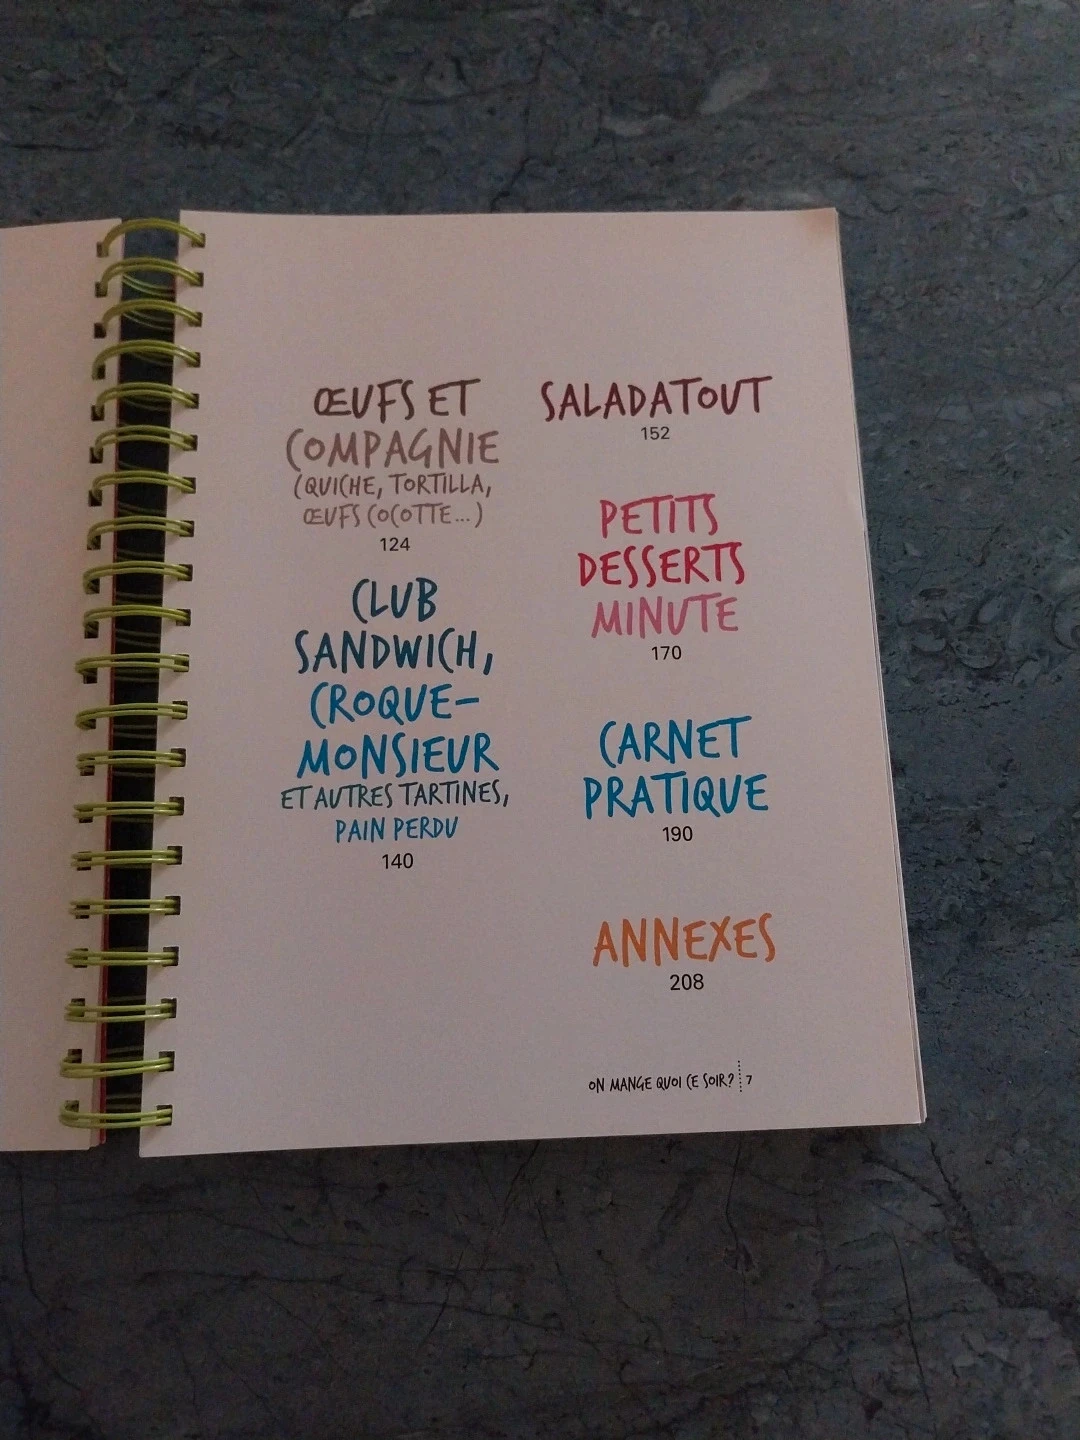 ŒUFS ET
COMPAGNIE
(QUICHE, TORTILLA,
ŒUFS COCOTTE...)
124
CLUB
SANDWICH,
CROQUE-
MONSIEUR
ET AUTRES TARTINES,
PAIN PERDU
140
SALADATOUT
152
PETITS
DESSERTS
MINUTE
170
CARNET
PRATIQUE
190
ANNEXES
208
ON MANGE QUOI CE SOIR? 7